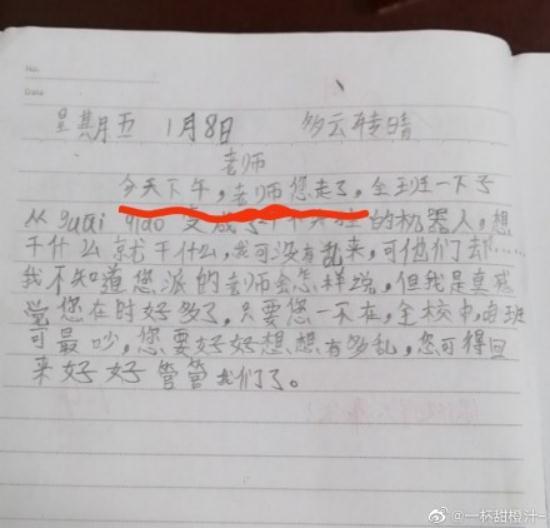 No.
Date
星期五 1月8日 多云转晴
老师
今天下午，老师您走了，全班一下子
从guāi qiǎo 变成了 的机器人，想
干什么就干什么，我可没有乱来，可他们却……
我不知道您派的老师会怎样说，但我是真感
觉您在时好多了，只要您一不在，全校中咱班
可最吵，您要好好想想有多乱，您可得回
来好好管管我们了。
@一杯甜橙汁-